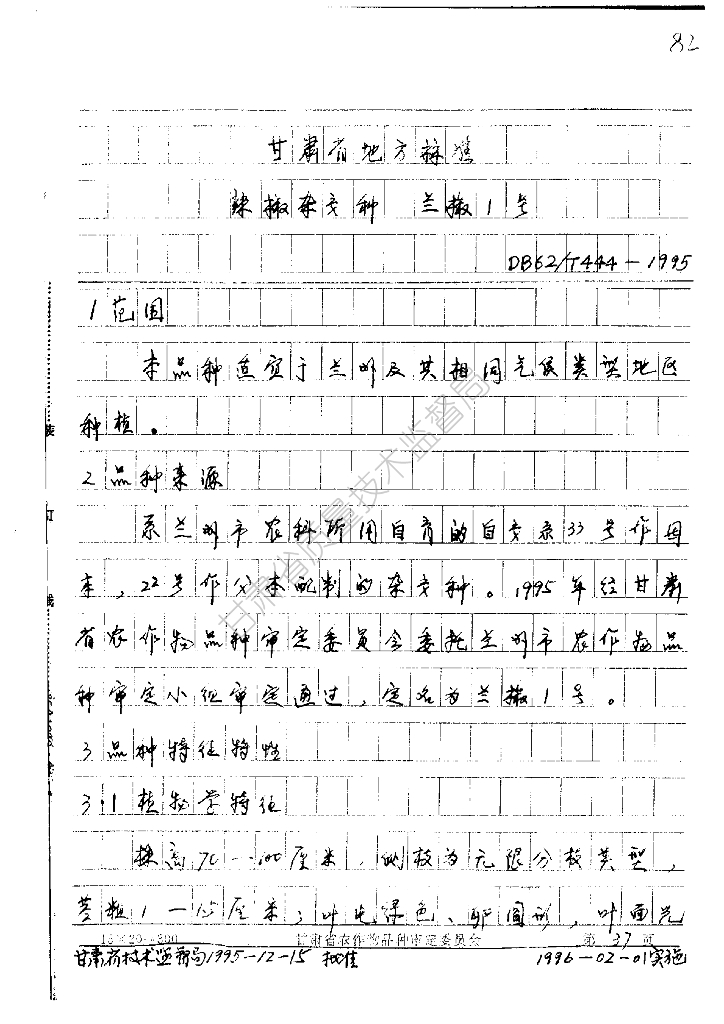 82
甘肃省地方标准
辣椒杂交种 兰椒1号
DB62/T444-1995
1范围
本品种适宜于兰州及其相同气候类型地区
种植。
2品种来源
系兰州市农科所用自育的自交系33号作母
本,22号作父本配制的杂交种。1995年经甘肃
省农作物品种审定委员会委托兰州市农作物品
种审定小组审定通过,定名为兰椒1号。
3品种特征特性
3.1植物学特征
株高70—100厘米,侧枝为无限分枝类型,
茎粗1—1.5厘米;叶片绿色、卵圆形,叶面光
15×20=300 甘肃省农作物品种审定委员会 第37页
甘肃省技术监督局1995-12-15 批准 1996-02-01实施
装
订
线
甘肃省质量技术监督局